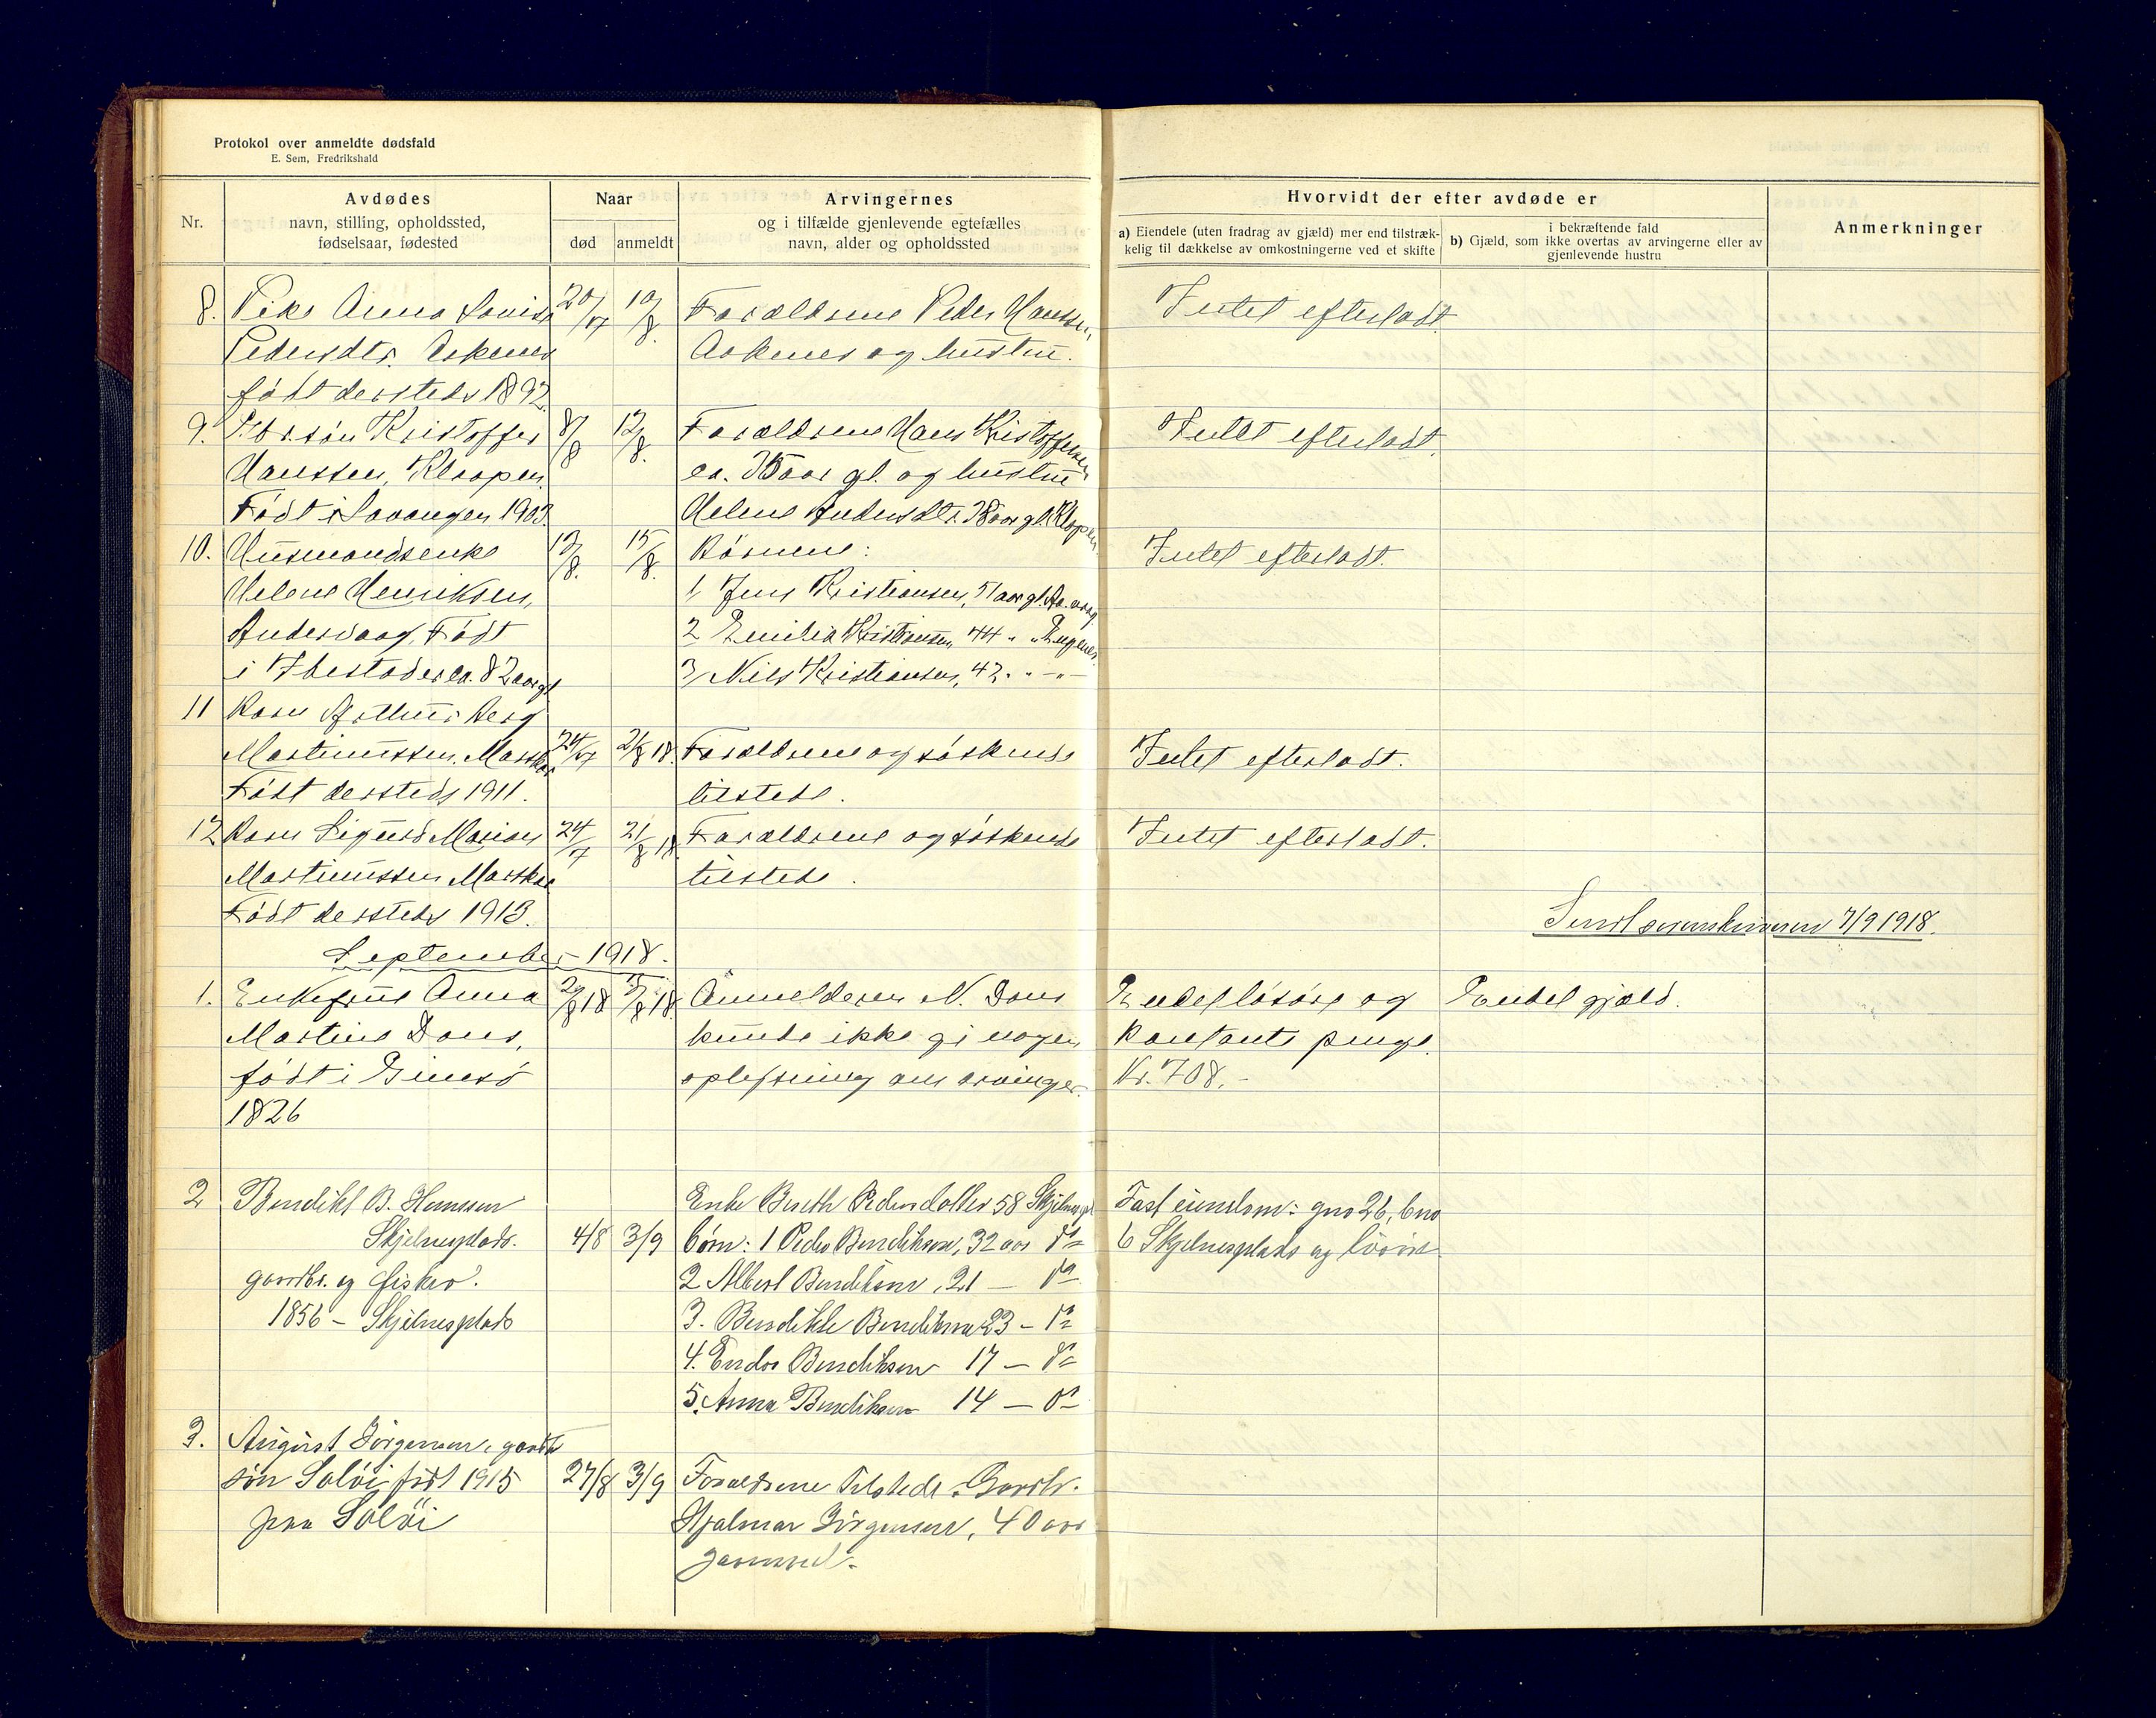 Protokol over anmeldte dødsfald
E. Sem, Fredrikshald
Nr.
Avdødes
navn, stilling, opholdssted,
fødselsaar, fødested
Naar
død
anmeldt
Arvingernes
og i tilfælde gjenlevende egtefælles
navn, alder og opholdssted
Hvorvidt der efter avdøde er
a) Eiendele (uten fradrag av gjæld) mer end tilstræk-
kelig til dækkelse av omkostningerne ved et skifte
i bekræftende fald
b) Gjæld, som ikke overtas av arvingerne eller av
gjenlevende hustru
Anmerkninger
8. Pike Anna Lovise 20/7 10/8. Forældrene Peder Hanssen, Intet efterladt
Pedersdtr. Aakenes Aakenes og hustru.
født dersteds 1892
9. søn Kristoffer 8/8 12/8. Forældrene Hans Kristoffersen Intet efterladt.
Hanssen, Kloppen. ca. 35 aar gl. og hustru
Født i Lavangen 1903. Helene Andersdtr. 38 aar gl. Kloppen
10. Husmandsenke 13/8. 15/8. Børnene: Intet efterladt.
Helene Henriksen, 1, Jens Kristiansen, 51 aar gl.
Født 2 Emilie Kristiansen, 44 " "
i Ibestad er ca. 82 aar gl 3, Nils Kristiansen, 42. " - " -
11 Barn Arthur Berg
Martinussen, 24/7 21/8 18. Forældrene og søskende Intet efterladt.
Født dersteds 1911. tilstede.
12 Barn Sigurd Marion 24/7 21/8 18. Forældrene og søskende Intet efterladt.
Martinussen tilstede.
Født dersteds 1913.
Sendt sorenskriveren 7/9 1918.
September - 1918.
1. Enkefrue Anna Anmelderen N. Dons Endel løsøre og Endel gjæld.
Martine Dons, kunde ikke gi nogen kontante penge.
født i Gimsø oplysning om arvinger. Kr. 708.-
1826
2 Bendikt B. Hanssen Enke Pedersdatter 58 Fast eiendom: gno 26, bno
Skjelnesplads. 4/8 3/9 børn: 1 Peder Bendiksen, 32 aar do 6 Skjelnesplads og løsøre
gaardbr. og fisker. 2 Albert Bendiksen, 21 — do
1856 – Skjelnesplads 3. Bendikte Bendiksen 23 – do
4. Endor Bendiksen 17 — do
5. Anna Bendiksen 14 — do
3. August Jørgensen, gaardbr
søn Soløi født 1915 27/8 3/9 Forældrene tilstede. Gaardbr.
paa Soløi Hjalmar Jørgensen, 40 aar